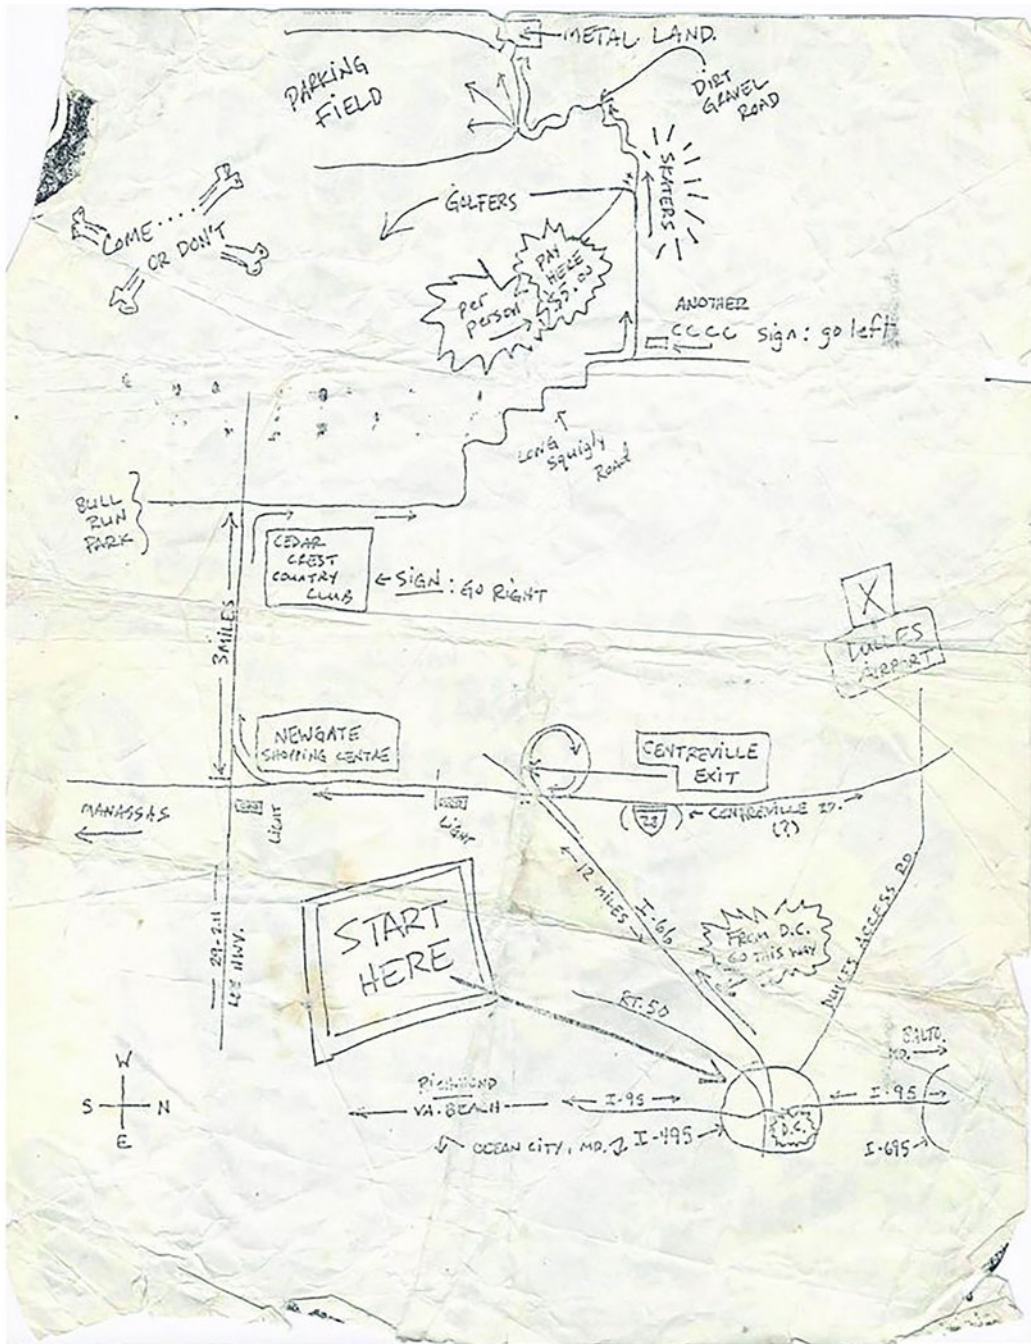 METAL LAND.
PARKING
FIELD
DIRT
GRAVEL
ROAD
SKATERS
GOLFERS
COME ....
OR DON'T
PAY
HERE
$5.00
per
person
ANOTHER
CCCC sign: go left
LONG
squigly
ROAD
BULL
RUN
PARK
CEDAR
CREST
COUNTRY
CLUB
SIGN: GO RIGHT
3 MILES
X
DULLES
AIRPORT
NEWGATE
SHOPPING CENTRE
CENTREVILLE
EXIT
MANASSAS
LIGHT
LIGHT
(28) CENTREVILLE RD.
(?)
12 MILES
I-66
START
HERE
FROM D.C.
GO THIS WAY
DULLES ACCESS RD
29-211
LEE HWY.
RT. 50
BALTO.
MD.
W
S N
E
RICHMOND
VA. BEACH
I-95
I-95
D.C.
OCEAN CITY, MD.
I-495
I-695